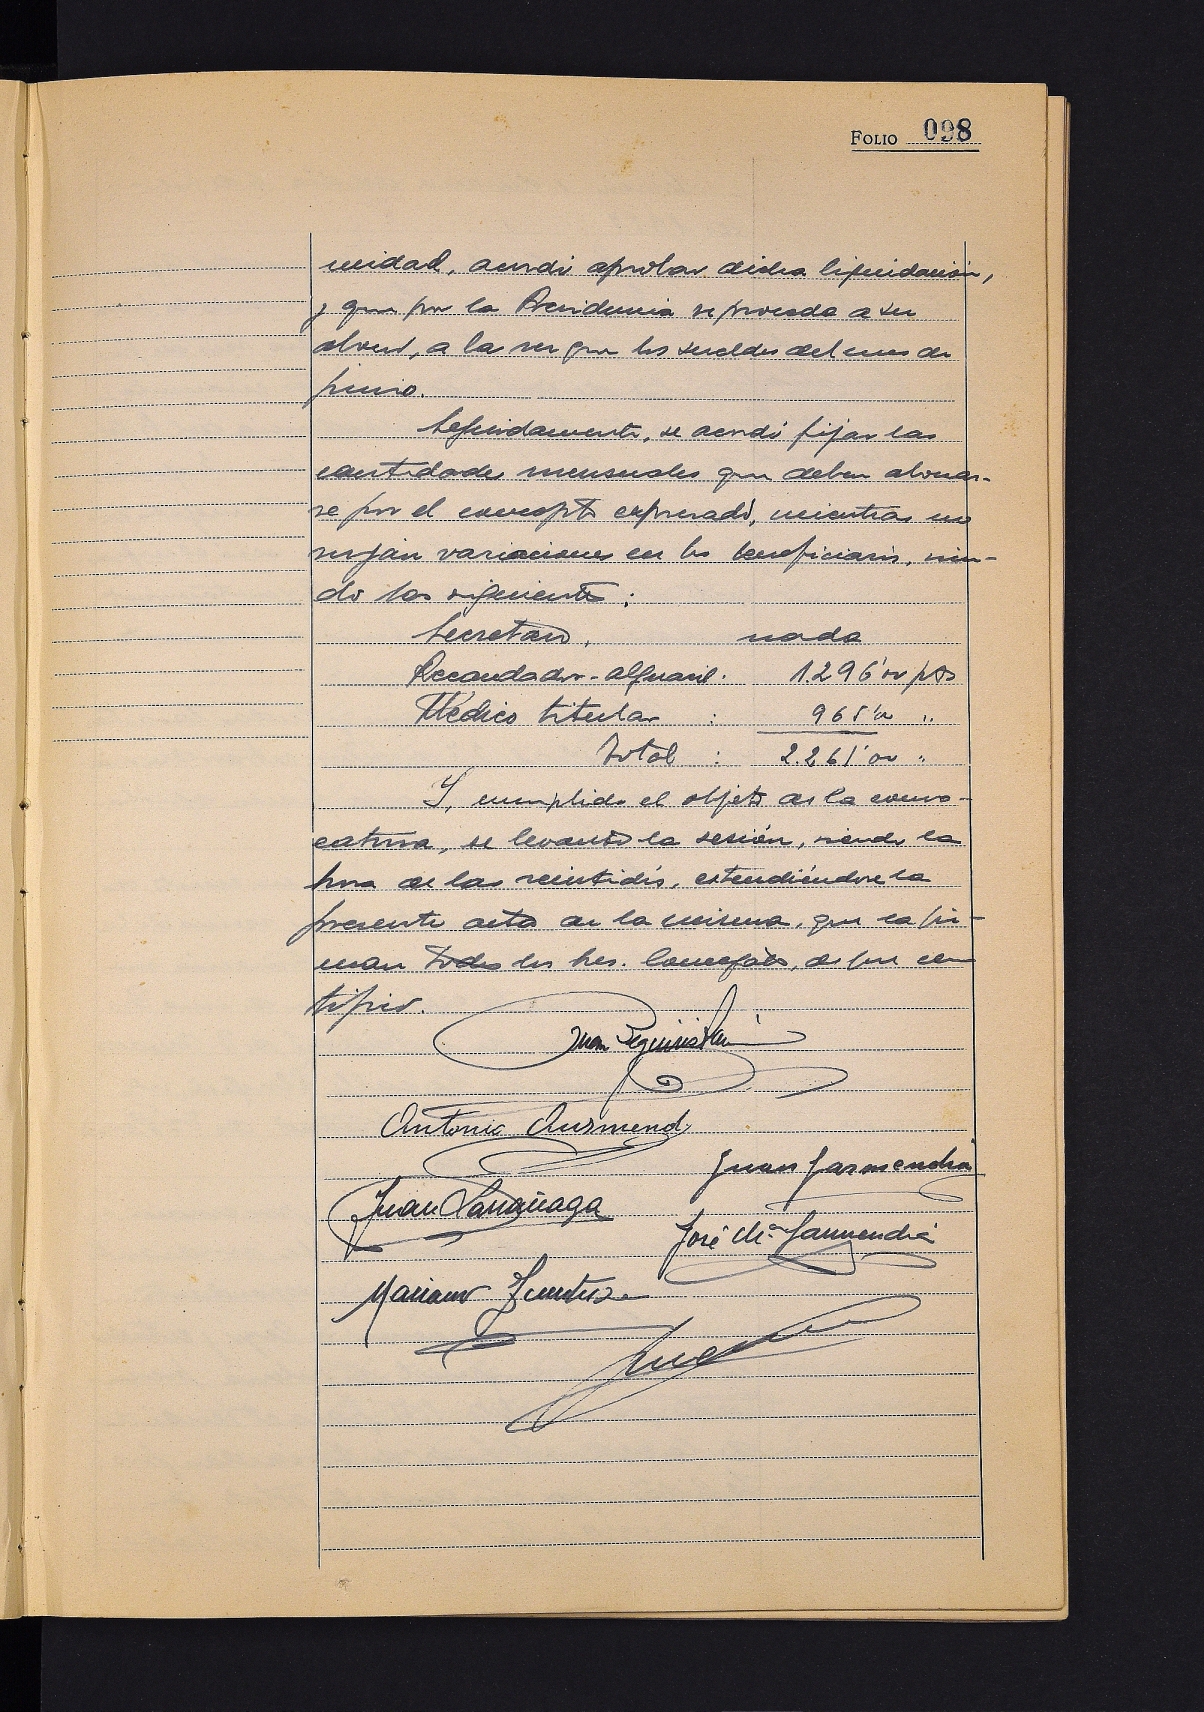 FOLIO 098
nidad, acordó aprobar dicha liquidación,
y que por la Presidencia se proceda a su
abono, a la vez que los sueldos del mes de
junio.
Seguidamente, se acordó fijar las
cantidades mensuales que deben abonar-
se por el concepto expresado, mientras no
surjan variaciones en los beneficiarios, sien-
do las siguientes:
Secretario, nada
Recaudador-alguacil. 1.296'00 pts
Médico titular : 965'00 "
Total : 2.261'00 "
Y, cumplido el objeto de la convo-
catoria, se levantó la sesión, siendo la
hora de las veintidós, extendiéndose la
presente acta de la misma, que la fir-
man todos los Sres. Concejales, de que cer
tifico.
Juan
Antonio Ausmendi
Juan Garmendia
Juan Larrañaga
José Mª Garmendia
Mariano